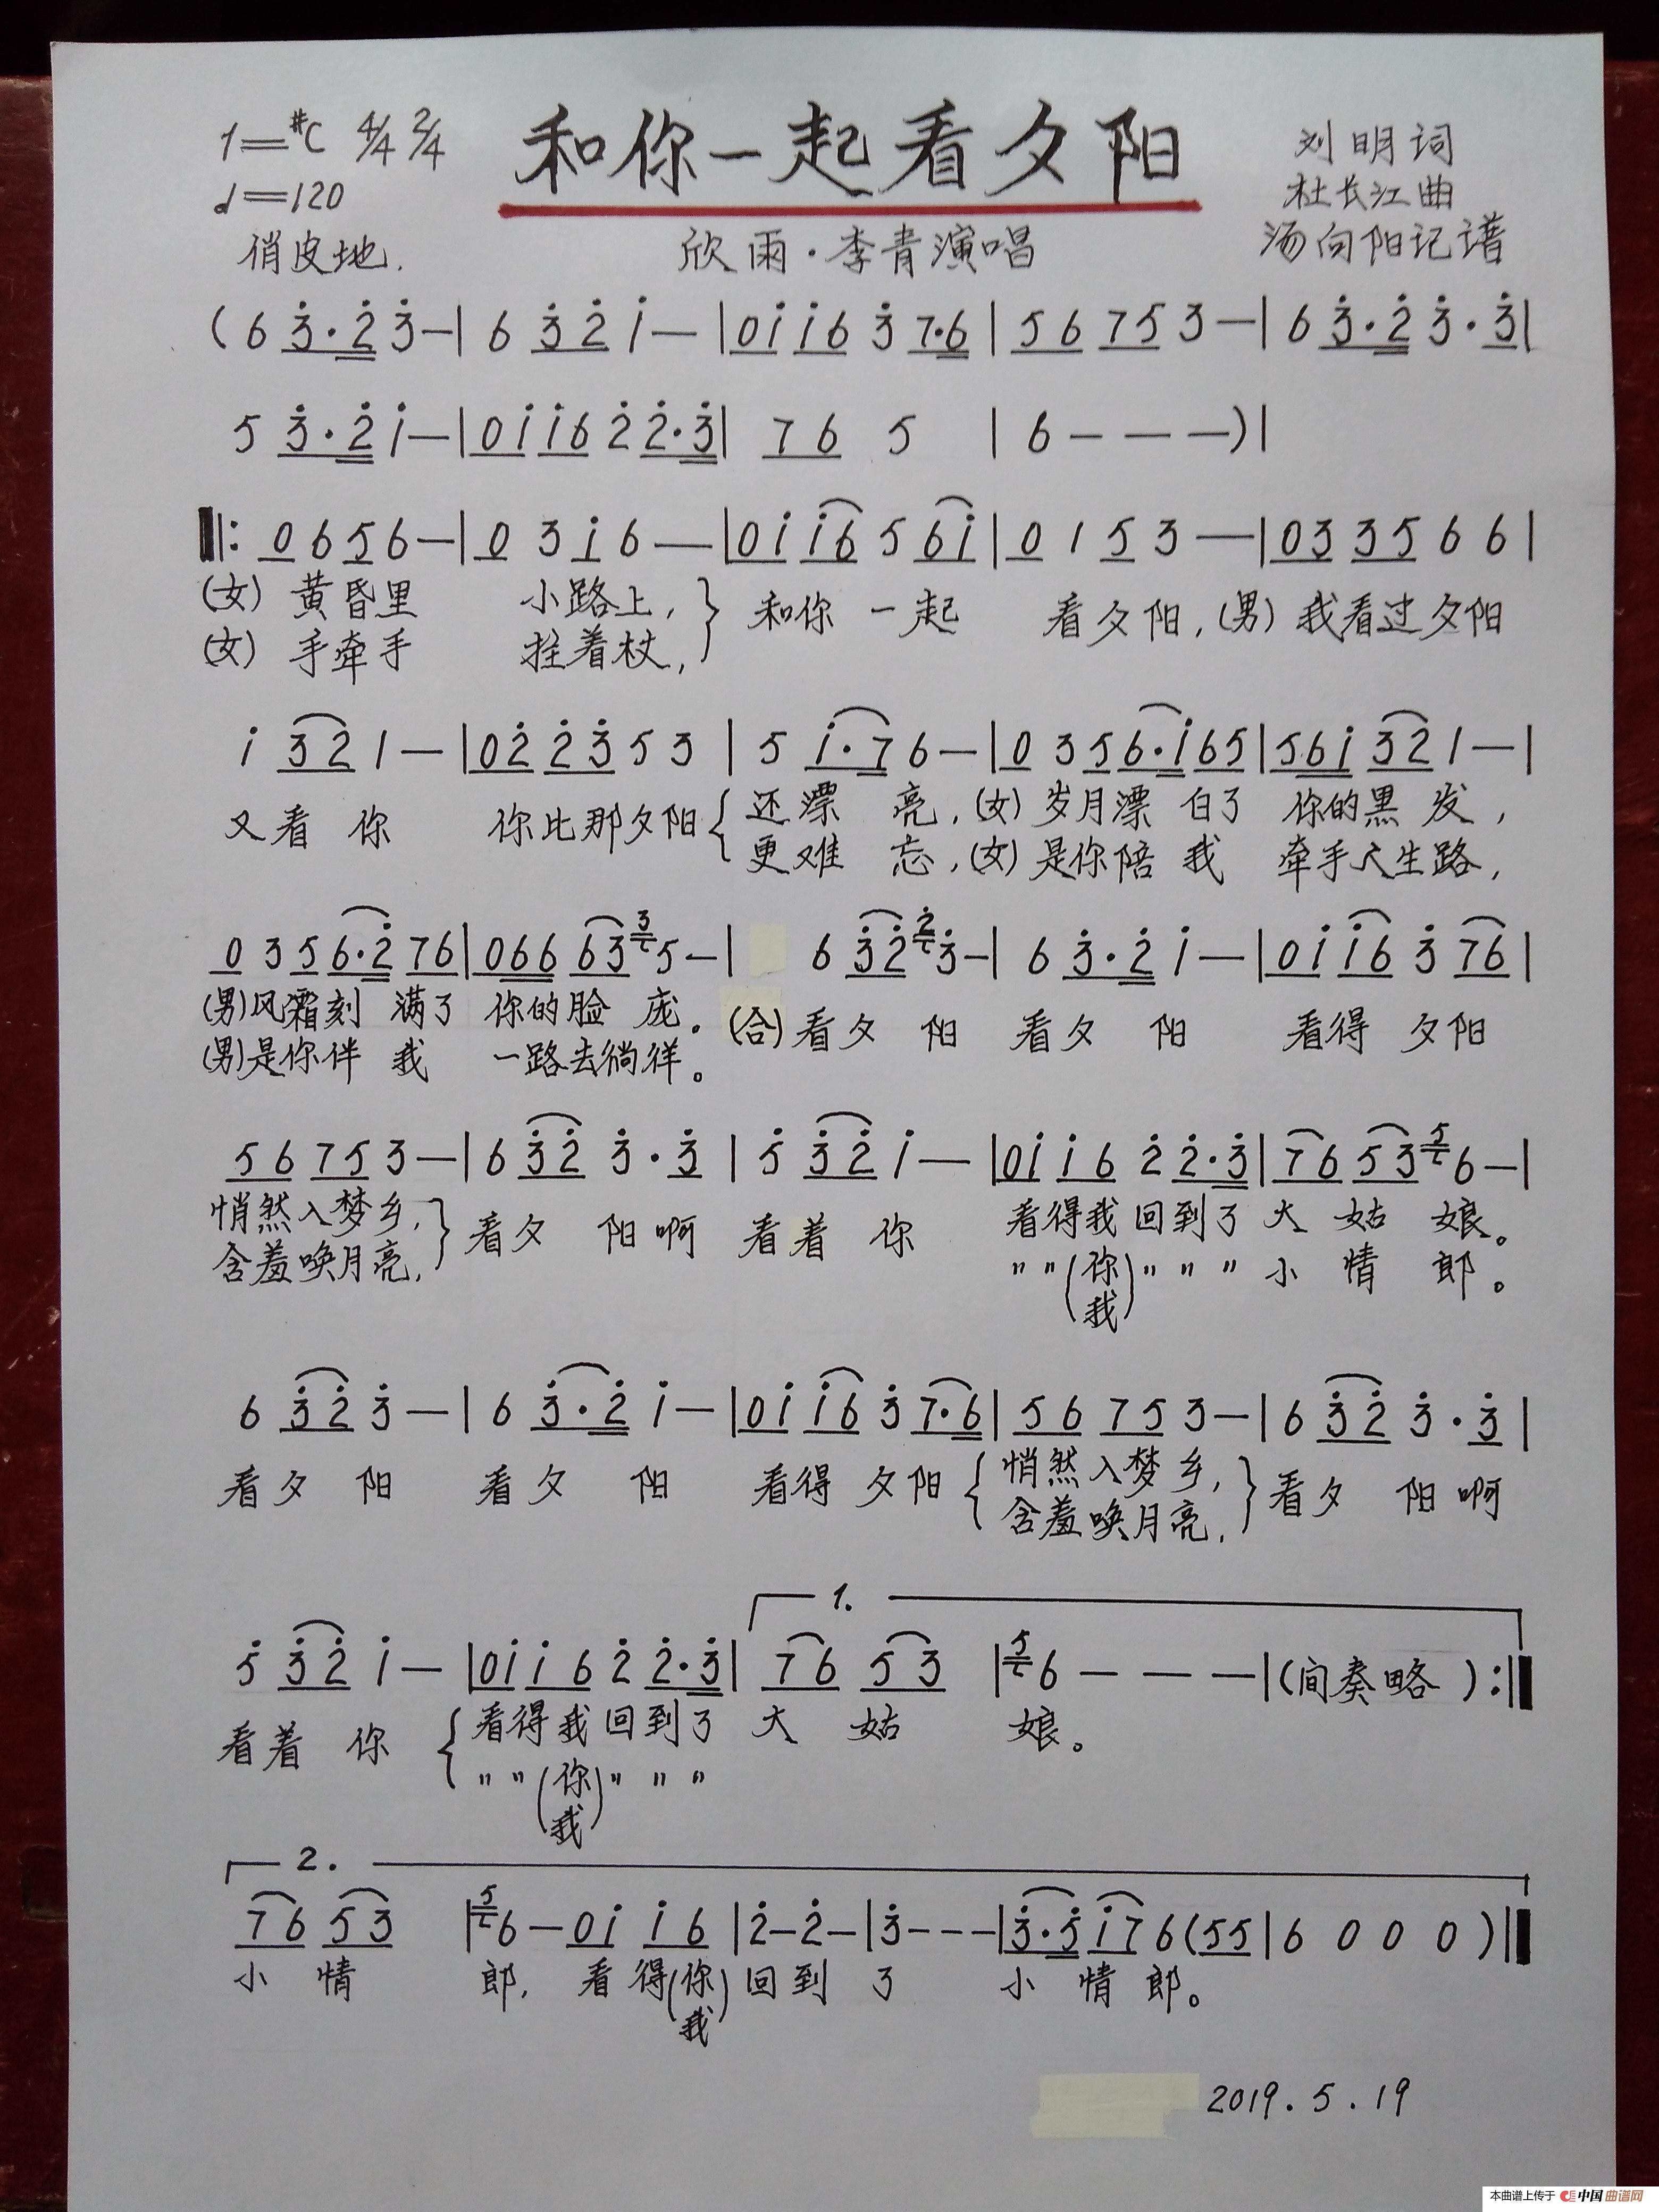 1=#C 4/4 2/4
♩=120
俏皮地.
和你一起看夕阳
欣雨·李青演唱
刘明词
杜长江曲
汤向阳记谱
(6 3·2 3—|6 3 2 1—|01 16 3 7·6|56 75 3—|6 3·2 3·3|
5 3·2 1—|01 16 2 2·3|76 5|6 — — —)|
‖: 0 6 5 6—|0 3 1 6—|01 16 5 61|0 1 5 3—|03 35 6 6|
(女) 黄昏里 小路上,} 和你 一起 看夕阳,(男) 我看过夕阳
(女) 手牵手 拄着杖,
1 32 1—|02 23 5 3|5 1·7 6—|0 3 5 6·1 65|561 32 1—|
又看 你 你比那夕阳{还漂 亮,(女) 岁月漂 白了 你的黑 发,
更难 忘,(女) 是你陪 我 牵手人生路,
0 3 5 6·2 76|066 63 3 5—| 6 32 2 3—|6 3·2 1—|01 16 3 76|
(男)风霜刻 满了 你的脸 庞。(合)看夕 阳 看夕 阳 看得 夕阳
(男)是你伴 我 一路去徜徉。
56 75 3—|6 32 3·3|5 32 1—|01 16 2 2·3|76 53 5 6—|
悄然入梦乡,} 看夕 阳啊 看着 你 看得我回到了 大 姑 娘。
含羞唤月亮, " "(你我)" " " 小 情 郎。
6 32 3—|6 3·2 1—|01 16 3 7·6|56 75 3—|6 32 3·3|
看夕 阳 看夕 阳 看得 夕阳{悄然入梦乡,} 看夕 阳啊
含羞唤月亮,
1.
5 32 1—|01 16 2 2·3|76 53|5 6 — — —|(间奏略):‖
看着 你 {看得我回到了 大 姑 娘。
" "(你我)" " "
2.
76 53|5 6—01 16|2—2—|3---|3·5 17 6(55|6 0 0 0)‖
小 情 郎, 看得(你我)回到 了 小 情郎。
2019.5.19
本曲谱上传于 中国曲谱网